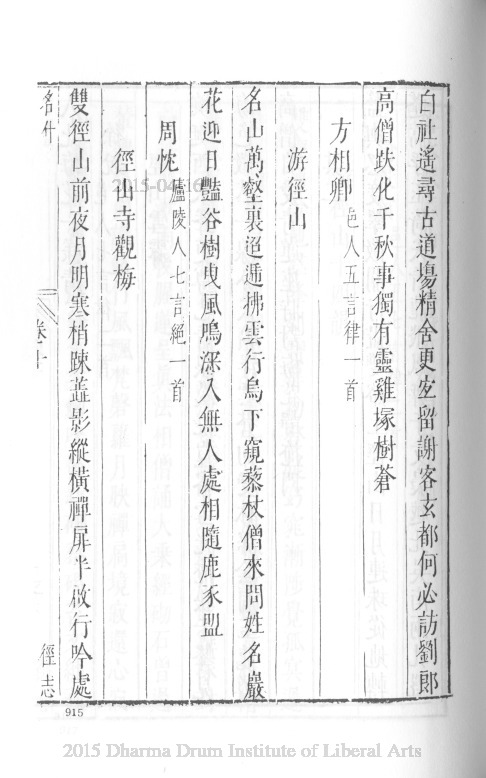 白社遙尋古道場精舍更宜留謝客玄都何必訪劉郎
高僧趺化千秋事獨有靈雞塚樹蒼
方相卿 邑人五言律一首
游徑山
名山萬壑裏迢遞拂雲行鳥下窺藜杖僧來問姓名巖
花迎日豔谷樹曳風鳴深入無人處相隨鹿豕盟
周忱 廬陵人七言絕一首
徑山寺觀梅
雙徑山前夜月明寒梢踈蕋影縱橫禪扉半啟行吟處
名什 卷十 徑志
915
2015-04-16
2015 Dharma Drum Institute of Liberal Arts